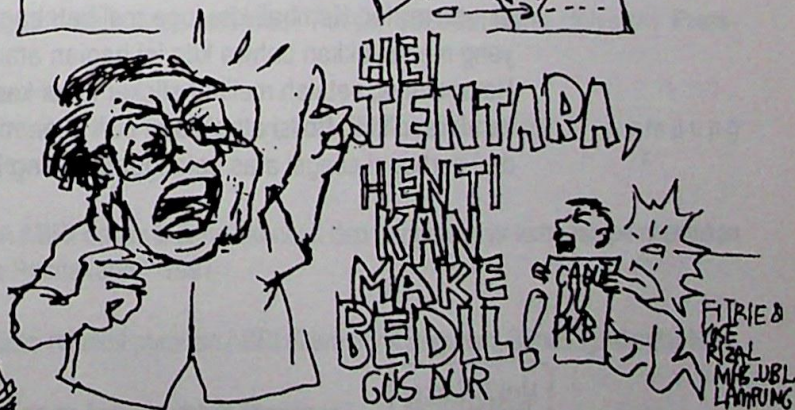 HEI
TENTARA,
HENTI
KAN
MAKE
BEDIL!
GUS DUR
CALEG
PKB
FITRIE &
RIZAL
MHS.UBL
LAMPUNG